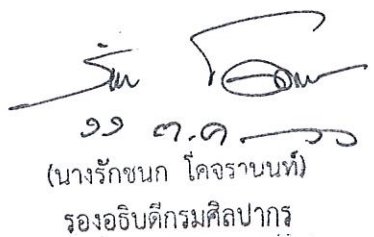 ๑๑ ต.ค. ๖๖
(นางรักชนก โคจรานนท์)
รองอธิบดีกรมศิลปากร